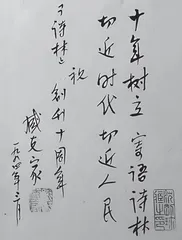 十年树立 寄语诗林
切近时代 切近人民
祝
《诗林》创刊十周年
臧克家
一九九四年二月